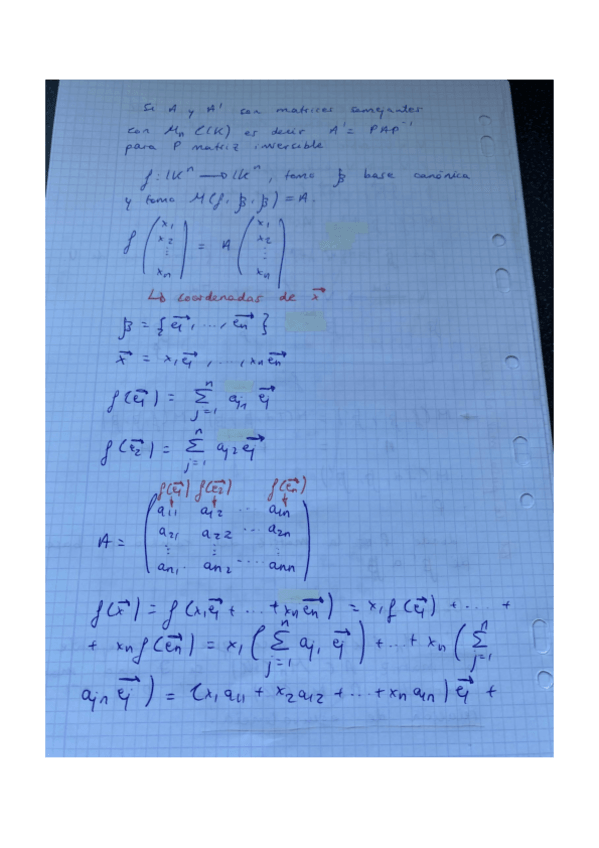 Si A y A' son matrices semejantes
con Mn (K) es decir A' = PAP⁻¹
para P matriz invercible
f: Kⁿ → Kⁿ, tomo β base canónica
y tomo M(f, β, β) = A.
f (x₁ x₂ ⋮ xₙ) = A (x₁ x₂ ⋮ xₙ)
↳ coordenadas de x⃗
β = {e⃗₁, ..., e⃗ₙ}
x⃗ = x₁e⃗₁, ..., xₙe⃗ₙ
f(e⃗₁) = Σⁿⱼ₌₁ aⱼₙ e⃗ⱼ
f(e⃗₂) = Σⁿⱼ₌₁ aⱼ₂ e⃗ⱼ
f(e⃗₁) f(e⃗₂) f(e⃗ₙ)
↓ ↓ ↓
a₁₁ a₁₂ ... a₁ₙ
a₂₁ a₂₂ ... a₂ₙ
A = ⋮ ⋮ ⋮
aₙ₁ aₙ₂ ... aₙₙ
f(x⃗) = f(x₁e⃗₁ + ... + xₙe⃗ₙ) = x₁f(e⃗₁) + ... +
+ xₙf(e⃗ₙ) = x₁(Σⁿⱼ₌₁ aⱼ₁ e⃗ⱼ) + ... + xₙ(Σⁿⱼ₌₁
aⱼₙ e⃗ⱼ) = (x₁a₁₁ + x₂a₁₂ + ... + xₙa₁ₙ) e⃗₁ +